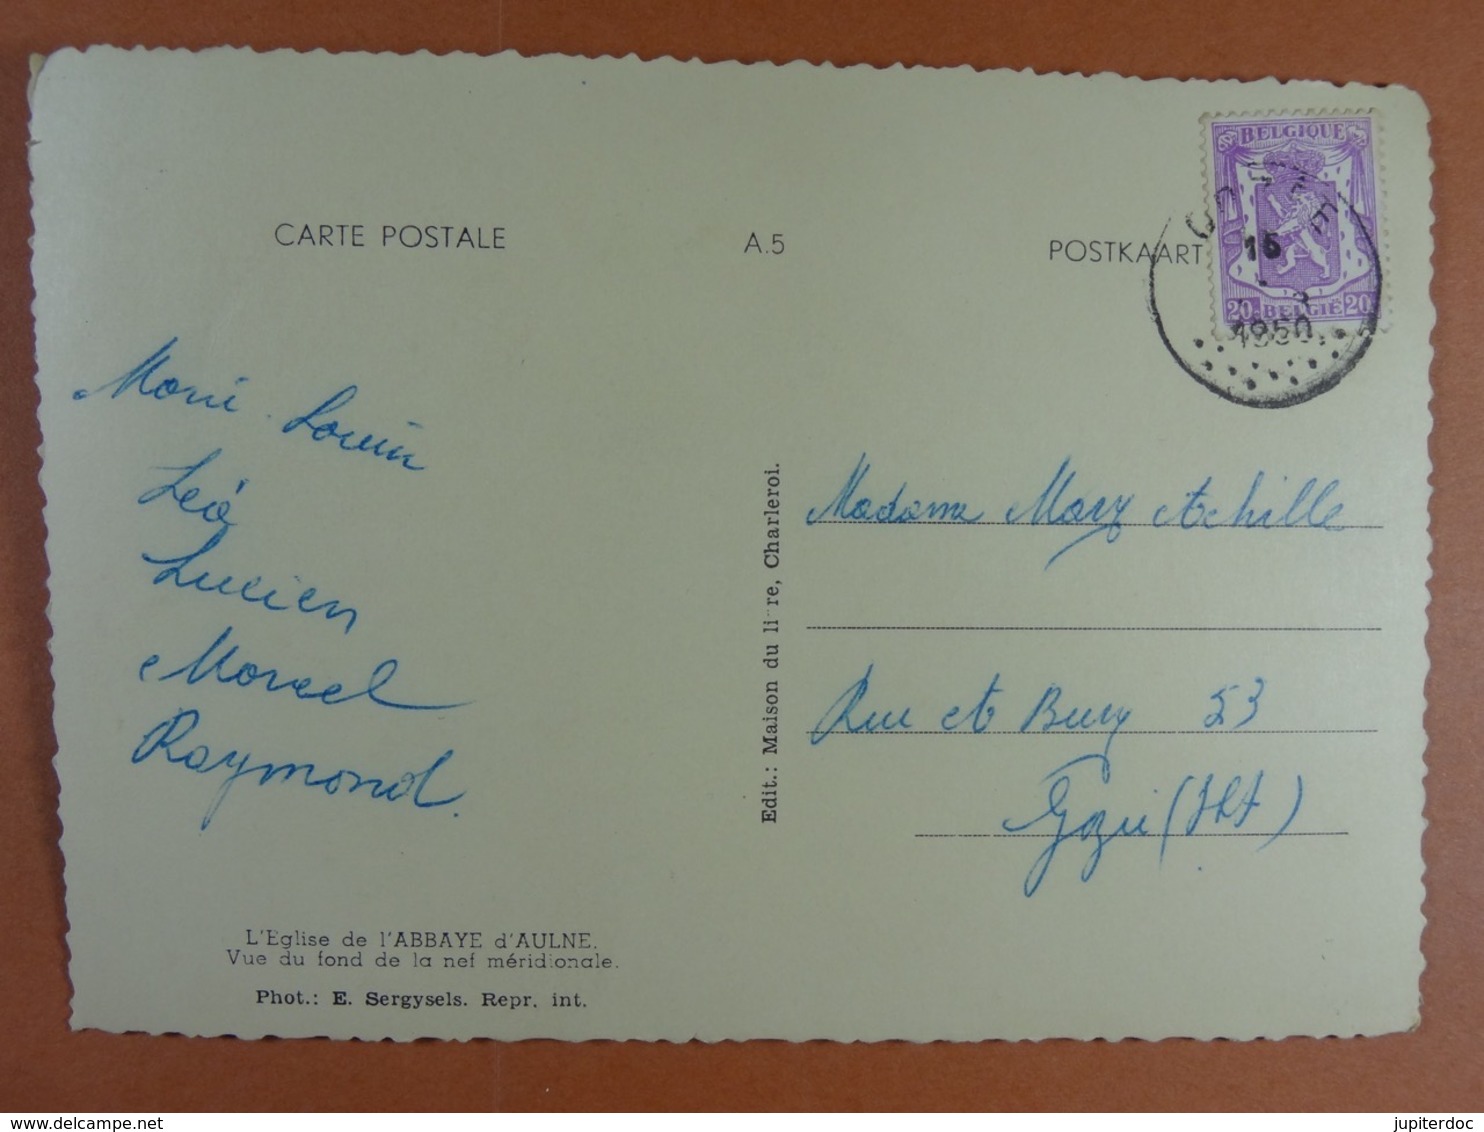 CARTE POSTALE
A.5
POSTKAART
BELGIQUE
16
20 BELGIË 20
1950
Louis
Léo
Lucien
Marcel
Raymond.
Edit.: Maison du li re, Charleroi.
Madame Mary Achille
Rue de Bury 53
L'Eglise de l'ABBAYE d'AULNE.
Vue du fond de la nef méridionale.
Phot.: E. Sergysels. Repr. int.
delcampe.net
jupiterdoc